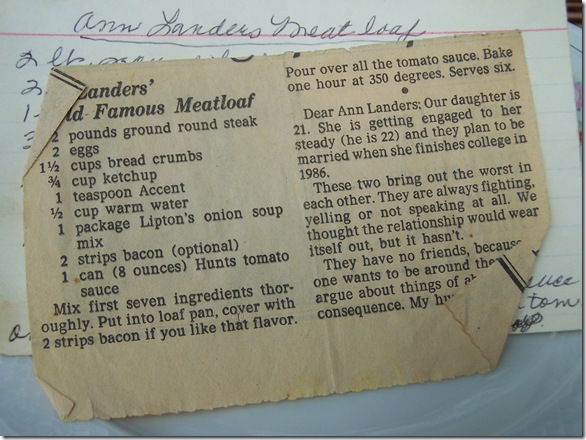 Ann Landers Meat loaf
2 lb
2
1
3
Landers'
Famous Meatloaf
2 pounds ground round steak
2 eggs
1½ cups bread crumbs
¾ cup ketchup
1 teaspoon Accent
½ cup warm water
1 package Lipton's onion soup
mix
2 strips bacon (optional)
1 can (8 ounces) Hunts tomato
sauce
Mix first seven ingredients thor-
oughly. Put into loaf pan, cover with
2 strips bacon if you like that flavor.
Pour over all the tomato sauce. Bake
one hour at 350 degrees. Serves six.
Dear Ann Landers: Our daughter is
21. She is getting engaged to her
steady (he is 22) and they plan to be
married when she finishes college in
1986.
These two bring out the worst in
each other. They are always fighting,
yelling or not speaking at all. We
thought the relationship would wear
itself out, but it hasn't.
They have no friends, because
one wants to be around
argue about things of
consequence. My